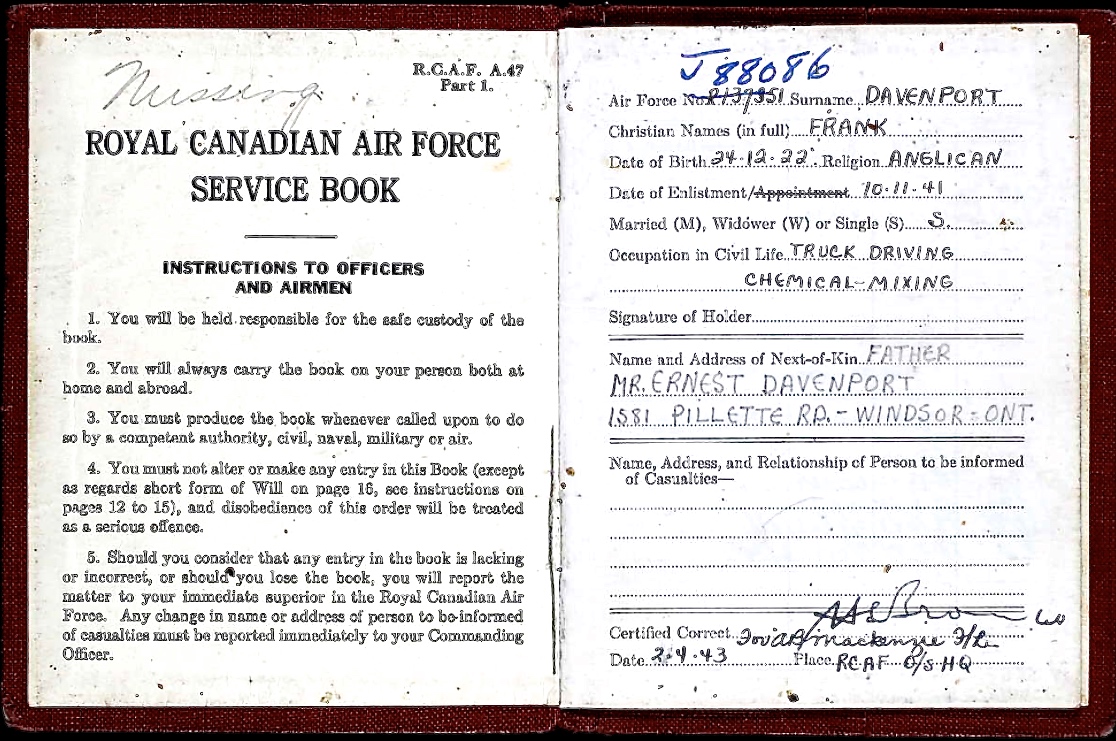 Missing
R.C.A.F. A.47
Part 1.
ROYAL CANADIAN AIR FORCE
SERVICE BOOK
INSTRUCTIONS TO OFFICERS
AND AIRMEN
1. You will be held responsible for the safe custody of the
book.
2. You will always carry the book on your person both at
home and abroad.
3. You must produce the book whenever called upon to do
so by a competent authority, civil, naval, military or air.
4. You must not alter or make any entry in this Book (except
as regards short form of Will on page 16, see instructions on
pages 12 to 15), and disobedience of this order will be treated
as a serious offence.
5. Should you consider that any entry in the book is lacking
or incorrect, or should you lose the book, you will report the
matter to your immediate superior in the Royal Canadian Air
Force. Any change in name or address of person to be informed
of casualties must be reported immediately to your Commanding
Officer.
J88086
Air Force No. R137951 Surname DAVENPORT
Christian Names (in full) FRANK
Date of Birth 24.12.22. Religion ANGLICAN
Date of Enlistment/Appointment 10.11.41
Married (M), Widower (W) or Single (S) S.
Occupation in Civil Life TRUCK DRIVING
CHEMICAL-MIXING
Signature of Holder
Name and Address of Next-of-Kin FATHER
MR. ERNEST DAVENPORT
1581 PILLETTE RD. - WINDSOR - ONT.
Name, Address, and Relationship of Person to be informed
of Casualties—
Certified Correct Mackenzie F/L
Date 2.4.43 Place RCAF O/S HQ